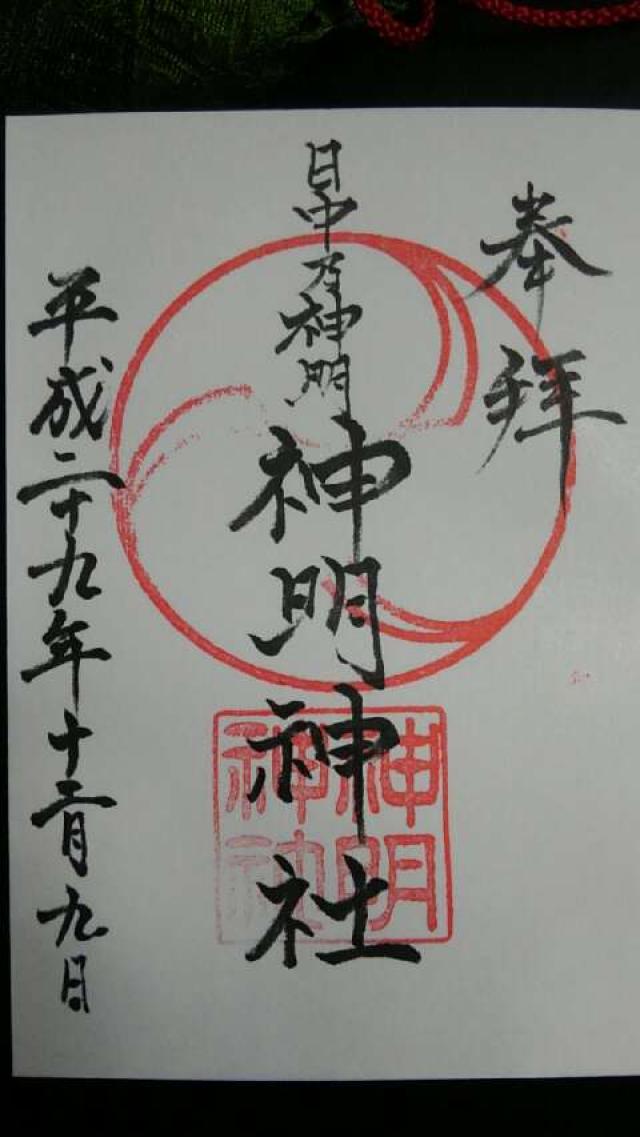 奉拝
日中乃神明
神明神社
神明神社
平成二十九年十二月九日